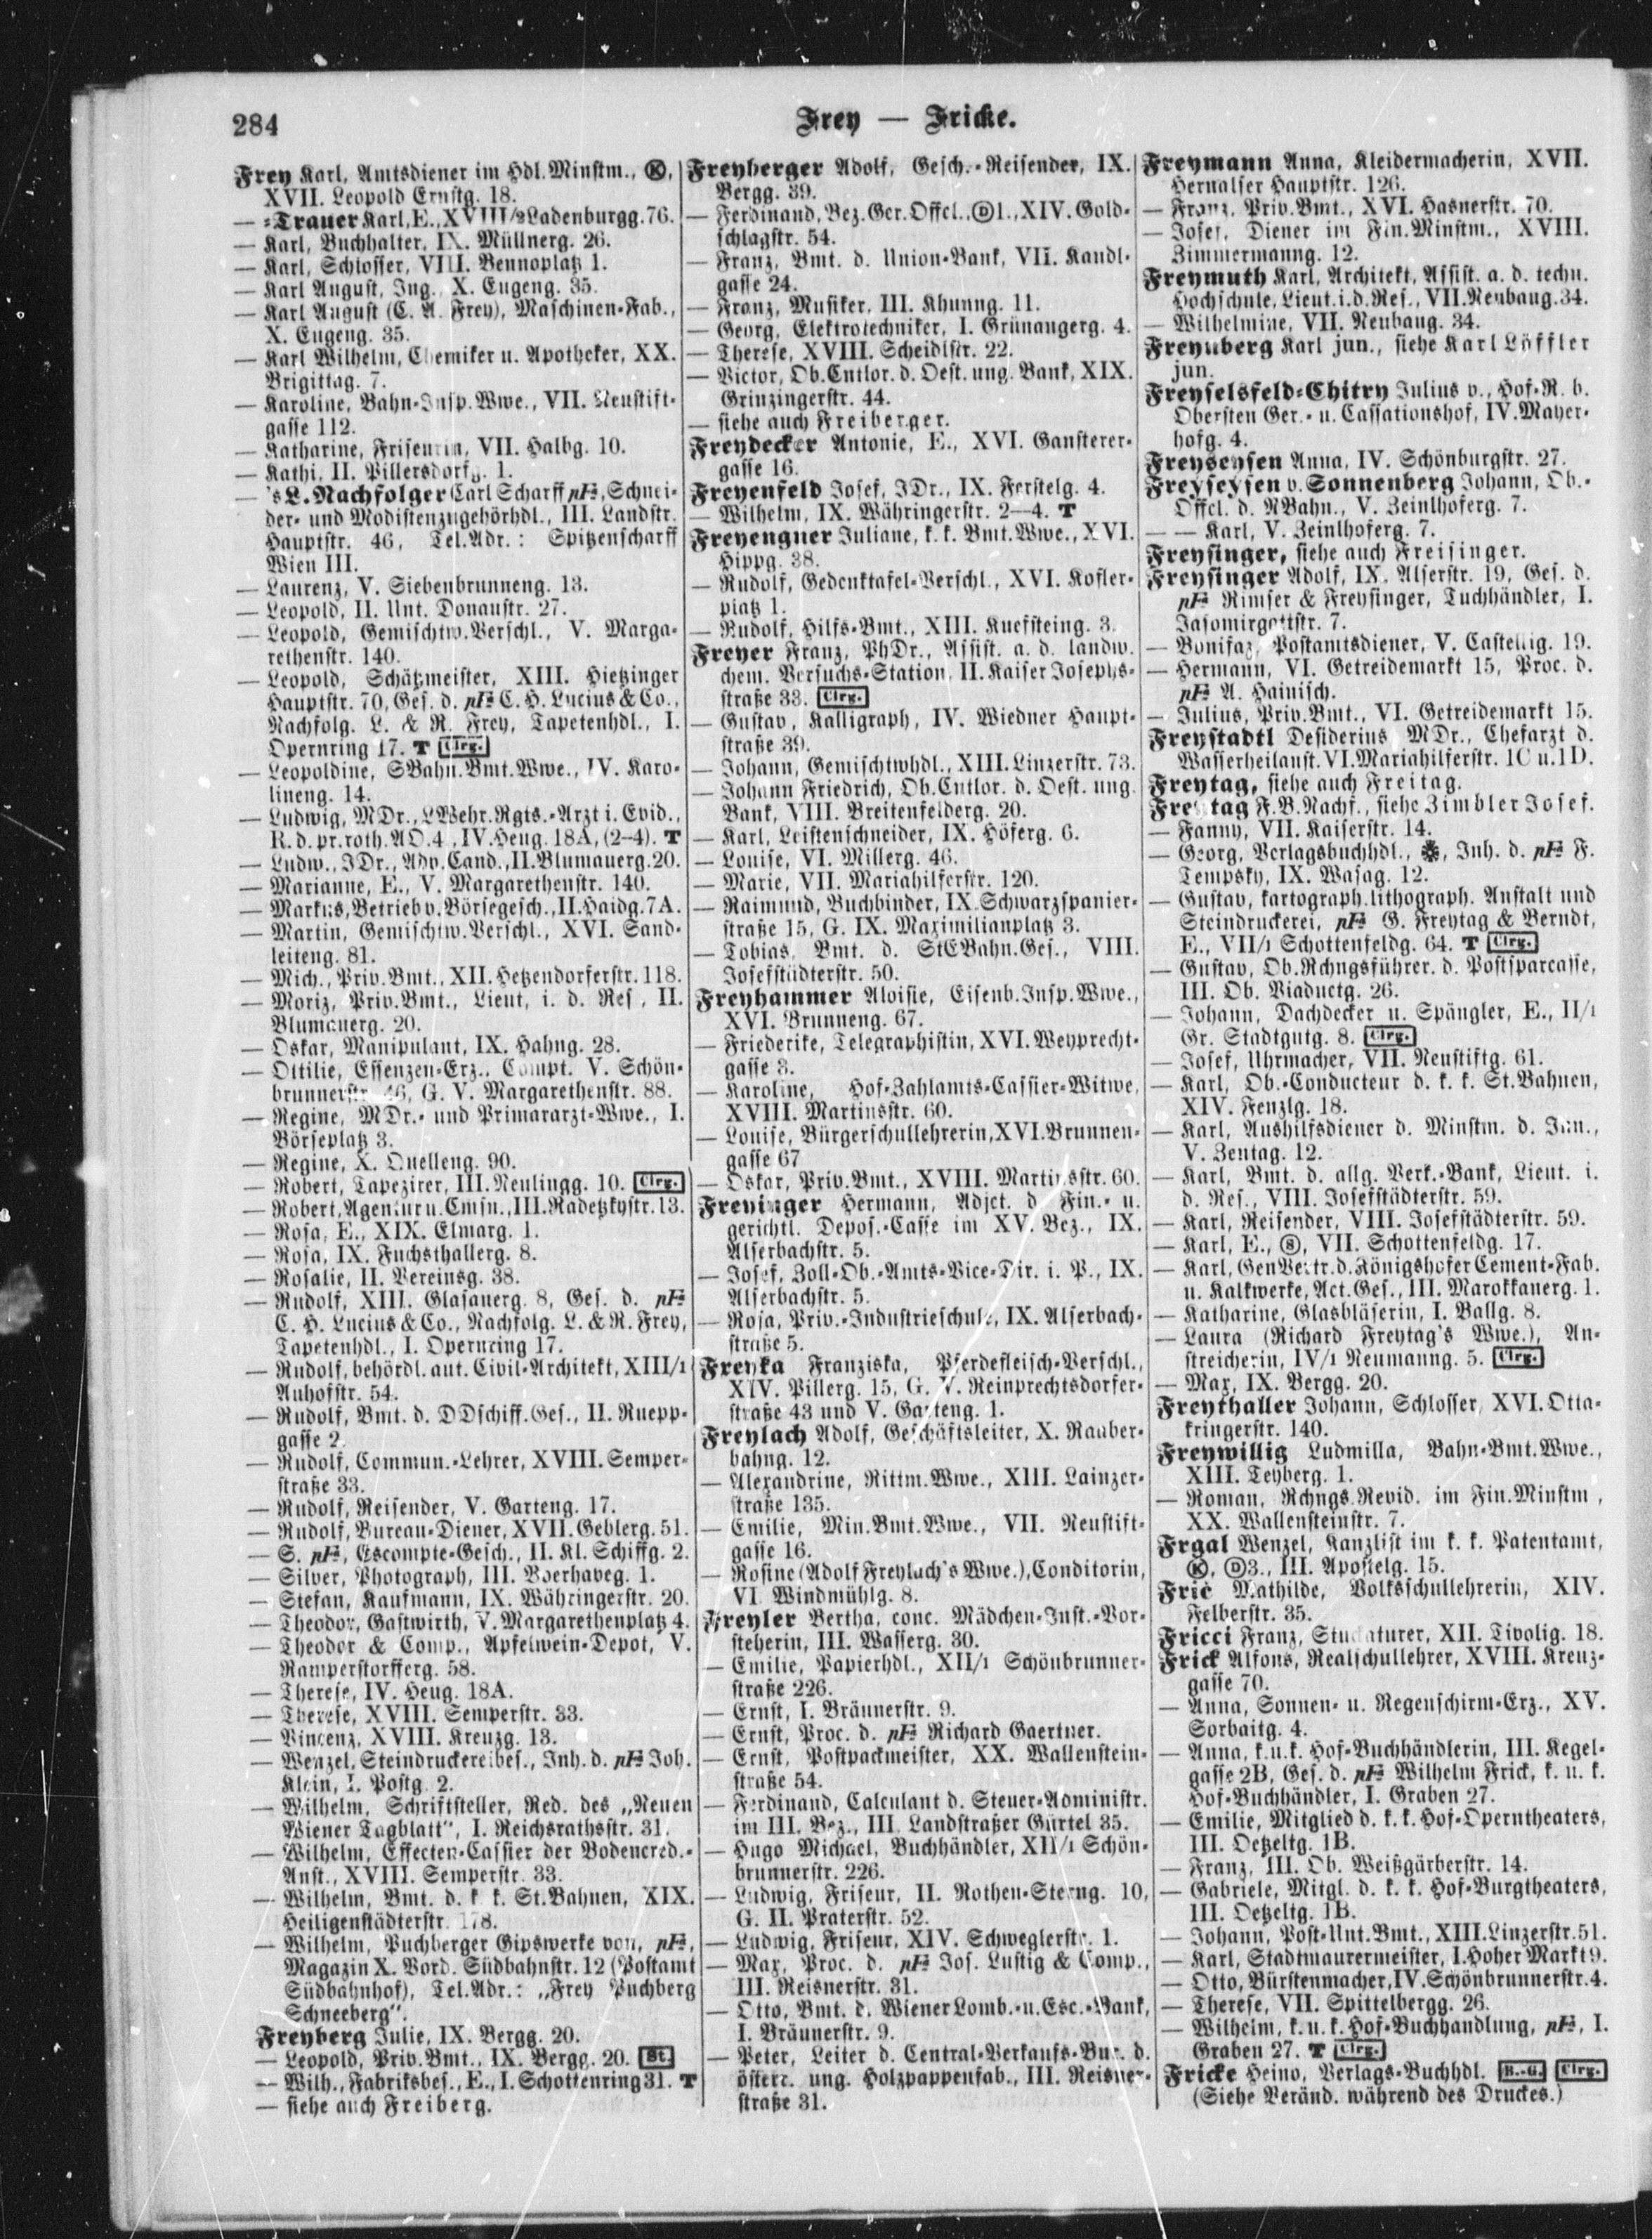 284
Frey — Fricke.
Frey Karl, Amtsdiener im Hdl.Minstm., Ⓚ,
XVII. Leopold Ernstg. 18.
— -Trauer Karl, E., XVIII/2 Ladenburgg. 76.
— Karl, Buchhalter, IX. Müllnerg. 26.
— Karl, Schlosser, VIII. Bennoplatz 1.
— Karl August, Ing., X. Eugeng. 35.
— Karl August (C. A. Frey), Maschinen-Fab.,
X. Eugeng. 35.
— Karl Wilhelm, Chemiker u. Apotheker, XX.
Brigittag. 7.
— Karoline, Bahn-Insp.Wwe., VII. Neustift-
gasse 112.
— Katharine, Friseurin, VII. Halbg. 10.
— Kathi, II. Pillersdorfg. 1.
— 's L. Nachfolger Carl Scharff pF, Schnei-
der- und Modistenzugehörhdl., III. Landstr.
Hauptstr. 46, Tel.Adr.: Spitzenscharff
Wien III.
— Laurenz, V. Siebenbrunneng. 13.
— Leopold, II. Unt. Donaustr. 27.
— Leopold, Gemischtw.Verschl., V. Marga-
rethenstr. 140.
— Leopold, Schätzmeister, XIII. Hietzinger
Hauptstr. 70, Ges. d. pF C. H. Lucius & Co.,
Nachfolg. L. & R. Frey, Tapetenhdl., I.
Opernring 17. T Clrg.
— Leopoldine, SBahn.Bmt.Wwe., IV. Karo-
lineng. 14.
— Ludwig, MDr., LWehr.Rgts.-Arzt i. Evid.,
R. d. pr. roth. AO. 4, IV. Heug. 18A, (2–4). T
— Ludw., JDr., Adv.Cand., II. Blumauerg. 20.
— Marianne, E., V. Margarethenstr. 140.
— Markus, Betrieb v. Börsegesch., II. Haidg. 7A.
— Martin, Gemischtw.Verschl., XVI. Sand-
leiteng. 81.
— Mich., Priv.Bmt., XII. Hetzendorferstr. 118.
— Moriz, Priv.Bmt., Lieut. i. d. Res., II.
Blumauerg. 20.
— Oskar, Manipulant, IX. Hahng. 28.
— Ottilie, Essenzen-Erz., Compt. V. Schön-
brunnerstr. 46, G. V. Margarethenstr. 88.
— Regine, MDr.- und Primararzt-Wwe., I.
Börseplatz 3.
— Regine, X. Quelleng. 90.
— Robert, Tapezirer, III. Neulingg. 10. Clrg.
— Robert, Agentur u. Cmsn., III. Radetzkystr. 13.
— Rosa, E., XIX. Elmarg. 1.
— Rosa, IX. Fuchsthallerg. 8.
— Rosalie, II. Vereinsg. 38.
— Rudolf, XIII. Glasauerg. 8, Ges. d. pF
C. H. Lucius & Co., Nachfolg. L. & R. Frey,
Tapetenhdl., I. Opernring 17.
— Rudolf, behördl. aut. Civil-Architekt, XIII/1
Auhofstr. 54.
— Rudolf, Bmt. d. DDschiff.Ges., II. Ruepp-
gasse 2.
— Rudolf, Commun.-Lehrer, XVIII. Semper-
straße 33.
— Rudolf, Reisender, V. Garteng. 17.
— Rudolf, Bureau-Diener, XVII. Geblerg. 51.
— S. pF, Escompte-Gesch., II. Kl. Schiffg. 2.
— Silver, Photograph, III. Boerhaveg. 1.
— Stefan, Kaufmann, IX. Währingerstr. 20.
— Theodor, Gastwirth, V. Margarethenplatz 4.
— Theodor & Comp., Apfelwein-Depot, V.
Ramperstorfferg. 58.
— Therese, IV. Heug. 18A.
— Therese, XVIII. Semperstr. 33.
— Vincenz, XVIII. Kreuzg. 13.
— Wenzel, Steindruckereibes., Inh. d. pF Joh.
Klein, I. Postg. 2.
— Wilhelm, Schriftsteller, Red. des „Neuen
Wiener Tagblatt“, I. Reichsrathsstr. 31.
— Wilhelm, Effecten-Cassier der Bodencred.-
Anst., XVIII. Semperstr. 33.
— Wilhelm, Bmt. d. k k. St.Bahnen, XIX.
Heiligenstädterstr. 178.
— Wilhelm, Puchberger Gipswerke von, pF,
Magazin X. Vord. Südbahnstr. 12 (Postamt
Südbahnhof), Tel.Adr.: „Frey Puchberg
Schneeberg“.
Freyberg Julie, IX. Bergg. 20.
— Leopold, Priv.Bmt., IX. Bergg. 20. St.
— Wilh., Fabriksbes., E., I. Schottenring 31. T
— siehe auch Freiberg.
Freyberger Adolf, Gesch.-Reisender, IX.
Bergg. 39.
— Ferdinand, Bez.Ger.Offcl., Ⓓ1., XIV. Gold-
schlagstr. 54.
— Franz, Bmt. d. Union-Bank, VII. Kandl-
gasse 24.
— Franz, Musiker, III. Khunng. 11.
— Georg, Elektrotechniker, I. Grünangerg. 4.
— Therese, XVIII. Scheidlstr. 22.
— Victor, Ob.Cntlor. d. Oest. ung. Bank, XIX.
Grinzingerstr. 44.
— siehe auch Freiberger.
Freydecker Antonie, E., XVI. Gansterer-
gasse 16.
Freyenfeld Josef, JDr., IX. Ferstelg. 4.
— Wilhelm, IX. Währingerstr. 2—4. T
Freyengner Juliane, k. k. Bmt.Wwe., XVI.
Hippg. 38.
— Rudolf, Gedenktafel-Verschl., XVI. Kofler-
platz 1.
— Rudolf, Hilfs-Bmt., XIII. Kuefsteing. 3.
Freyer Franz, PhDr., Assist. a. d. landw.
chem. Versuchs-Station, II. Kaiser Josephs-
straße 33. Clrg.
— Gustav, Kalligraph, IV. Wiedner Haupt-
straße 39.
— Johann, Gemischtwhdl., XIII. Linzerstr. 73.
— Johann Friedrich, Ob.Cntlor. d. Oest. ung.
Bank, VIII. Breitenfelderg. 20.
— Karl, Leistenschneider, IX. Höferg. 6.
— Louise, VI. Millerg. 46.
— Marie, VII. Mariahilferstr. 120.
— Raimund, Buchbinder, IX. Schwarzspanier-
straße 15, G. IX. Maximilianplatz 3.
— Tobias, Bmt. d. StEBahn.Ges., VIII.
Josefstädterstr. 50.
Freyhammer Aloisie, Eisenb.Insp.Wwe.,
XVI. Brunneng. 67.
— Friederike, Telegraphistin, XVI. Weyprecht-
gasse 3.
— Karoline, Hof-Zahlamts-Cassier-Witwe,
XVIII. Martinsstr. 60.
— Louise, Bürgerschullehrerin, XVI. Brunnen-
gasse 67
— Oskar, Priv.Bmt., XVIII. Martinsstr. 60.
Freyinger Hermann, Adjct. d. Fin.- u.
gerichtl. Depos.-Casse im XV. Bez., IX.
Alserbachstr. 5.
— Josef, Zoll-Ob.-Amts-Vice-Dir. i. P., IX.
Alserbachstr. 5.
— Rosa, Priv.-Industrieschule, IX. Alserbach-
straße 5.
Freyka Franziska, Pferdefleisch-Verschl.,
XIV. Pillerg. 15, G. V. Reinprechtsdorfer-
straße 43 und V. Garteng. 1.
Freylach Adolf, Geschäftsleiter, X. Rauber-
bahng. 12.
— Alexandrine, Rittm.Wwe., XIII. Lainzer-
straße 135.
— Emilie, Min.Bmt.Wwe., VII. Neustift-
gasse 16.
— Rosine (Adolf Freylach's Wwe.), Conditorin,
VI. Windmühlg. 8.
Freyler Bertha, conc. Mädchen-Inst.-Vor-
steherin, III. Wasserg. 30.
— Emilie, Papierhdl., XII/1 Schönbrunner-
straße 226.
— Ernst, I. Bräunerstr. 9.
— Ernst, Proc. d. pF Richard Gaertner.
— Ernst, Postpackmeister, XX. Wallenstein-
straße 54.
— Ferdinand, Calculant d. Steuer-Administr.
im III. Bez., III. Landstraßer Gürtel 35.
— Hugo Michael, Buchhändler, XII/1 Schön-
brunnerstr. 226.
— Ludwig, Friseur, II. Rothen-Sterng. 10,
G. II. Praterstr. 52.
— Ludwig, Friseur, XIV. Schweglerstr. 1.
— Max, Proc. d. pF Jos. Lustig & Comp.,
III. Reisnerstr. 31.
— Otto, Bmt. d. Wiener Lomb.-u. Esc.-Bank,
I. Bräunerstr. 9.
— Peter, Leiter d. Central-Verkaufs-Bur. d.
österr. ung. Holzpappenfab., III. Reisner-
straße 31.
Freymann Anna, Kleidermacherin, XVII.
Hernalser Hauptstr. 126.
— Franz, Priv.Bmt., XVI. Hasnerstr. 70.
— Josef, Diener im Fin.Minstm., XVIII.
Zimmermanng. 12.
Freymuth Karl, Architekt, Assist. a. d. techn.
Hochschule, Lieut. i. d. Res., VII. Neubaug. 34.
— Wilhelmine, VII. Neubaug. 34.
Freynberg Karl jun., siehe Karl Löffler
jun.
Freyselsfeld-Chitry Julius v., Hof-R. b.
Obersten Ger.- u. Cassationshof, IV. Mayer-
hofg. 4.
Freyseysen Anna, IV. Schönburgstr. 27.
Freyseysen v. Sonnenberg Johann, Ob.-
Offcl. d. NBahn., V. Zeinlhoferg. 7.
— — Karl, V. Zeinlhoferg. 7.
Freysinger, siehe auch Freisinger.
Freysinger Adolf, IX. Alserstr. 19, Ges. d.
pF Rimser & Freysinger, Tuchhändler, I.
Jasomirgottstr. 7.
— Bonifaz, Postamtsdiener, V. Castellig. 19.
— Hermann, VI. Getreidemarkt 15, Proc. d.
pF A. Hainisch.
— Julius, Priv.Bmt., VI. Getreidemarkt 15.
Freystadtl Desiderius MDr., Chefarzt d.
Wasserheilanst. VI. Mariahilferstr. 1C u. 1D.
Freytag, siehe auch Freitag.
Freytag F. B. Nachf., siehe Zimbler Josef.
— Fanny, VII. Kaiserstr. 14.
— Georg, Verlagsbuchhdl., ❋, Inh. d. pF F.
Tempsky, IX. Wasag. 12.
— Gustav, kartograph. lithograph. Anstalt und
Steindruckerei, pF G. Freytag & Berndt,
E., VII/1 Schottenfeldg. 64. T Clrg.
— Gustav, Ob.Rchngsführer. d. Postsparcasse,
III. Ob. Viaductg. 26.
— Johann, Dachdecker u. Spängler, E., II/1
Gr. Stadtgutg. 8. Clrg.
— Josef, Uhrmacher, VII. Neustiftg. 61.
— Karl, Ob.-Conducteur d. k. k. St.Bahnen,
XIV. Fenzlg. 18.
— Karl, Aushilfsdiener d. Minstm. d. Inn.,
V. Zentag. 12.
— Karl, Bmt. d. allg. Verk.-Bank, Lieut. i.
d. Res., VIII. Josefstädterstr. 59.
— Karl, Reisender, VIII. Josefstädterstr. 59.
— Karl, E., Ⓢ, VII. Schottenfeldg. 17.
— Karl, GenVertr. d. Königshofer Cement-Fab.
u. Kalkwerke, Act.Ges., III. Marokkanerg. 1.
— Katharine, Glasbläserin, I. Ballg. 8.
— Laura (Richard Freytag's Wwe.), An-
streicherin, IV/1 Neumanng. 5. Clrg.
— Max, IX. Bergg. 20.
Freythaller Johann, Schlosser, XVI. Otta-
kringerstr. 140.
Freywillig Ludmilla, Bahn-Bmt.Wwe.,
XIII. Teyberg. 1.
— Roman, Rchngs.Revid. im Fin.Minstm,
XX. Wallensteinstr. 7.
Frgal Wenzel, Kanzlist im k. k. Patentamt,
Ⓚ, Ⓓ3., III. Apostelg. 15.
Frič Mathilde, Volksschullehrerin, XIV.
Felberstr. 35.
Fricci Franz, Stuccaturer, XII. Tivolig. 18.
Frick Alfons, Realschullehrer, XVIII. Kreuz-
gasse 70.
— Anna, Sonnen- u. Regenschirm-Erz., XV.
Sorbaitg. 4.
— Anna, k.u.k. Hof-Buchhändlerin, III. Kegel-
gasse 2B, Ges. d. pF Wilhelm Frick, k. u. k.
Hof-Buchhändler, I. Graben 27.
— Emilie, Mitglied d. k. k. Hof-Operntheaters,
III. Oetzeltg. 1B.
— Franz, III. Ob. Weißgärberstr. 14.
— Gabriele, Mitgl. d. k. k. Hof-Burgtheaters,
III. Oetzeltg. 1B.
— Johann, Post-Unt.Bmt., XIII. Linzerstr. 51.
— Karl, Stadtmaurermeister, I. Hoher Markt 9.
— Otto, Bürstenmacher, IV. Schönbrunnerstr. 4.
— Therese, VII. Spittelbergg. 26.
— Wilhelm, k. u. k. Hof-Buchhandlung, pF, I.
Graben 27. T Clrg.
Fricke Heino, Verlags-Buchhdl. B.-G. Clrg.
(Siehe Veränd. während des Druckes.)